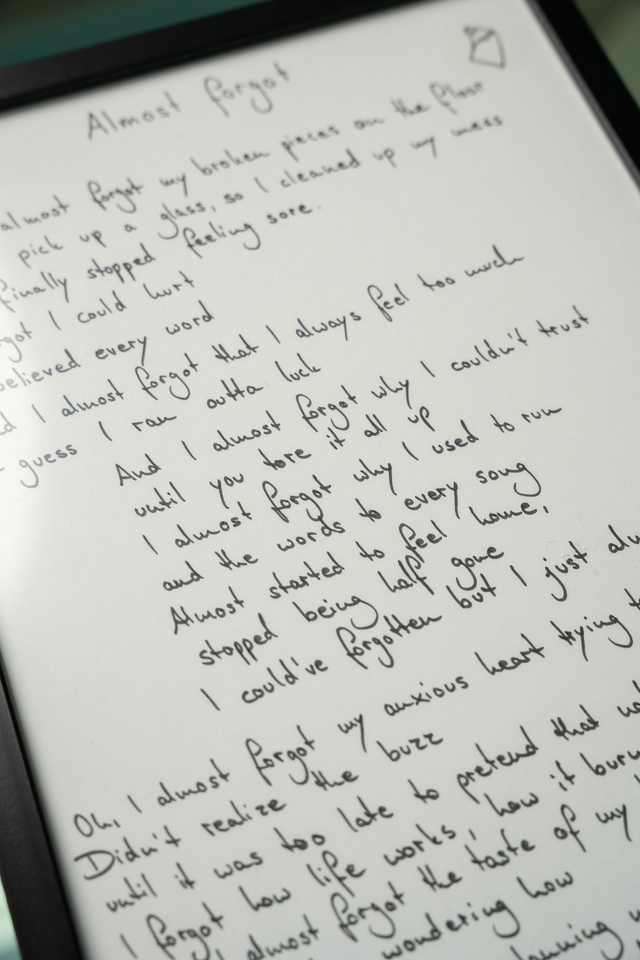 Almost forgot
almost forgot my broken pieces on the floor
pick up a glass, so I cleaned up my mess
finally stopped feeling sore.
I could hurt
believed every word
I almost forgot that I always feel too much
guess I ran outta luck
And I almost forgot why I couldn't trust
until you tore it all up
I almost forgot why I used to run
and the words to every song
Almost started to feel home,
stopped being half gone
I could've forgotten but I just
Oh, I almost forgot my anxious heart trying
Didn't realize the buzz
until it was too late to pretend that
I forgot how life works, how it
almost forgot the taste of my
wondering how